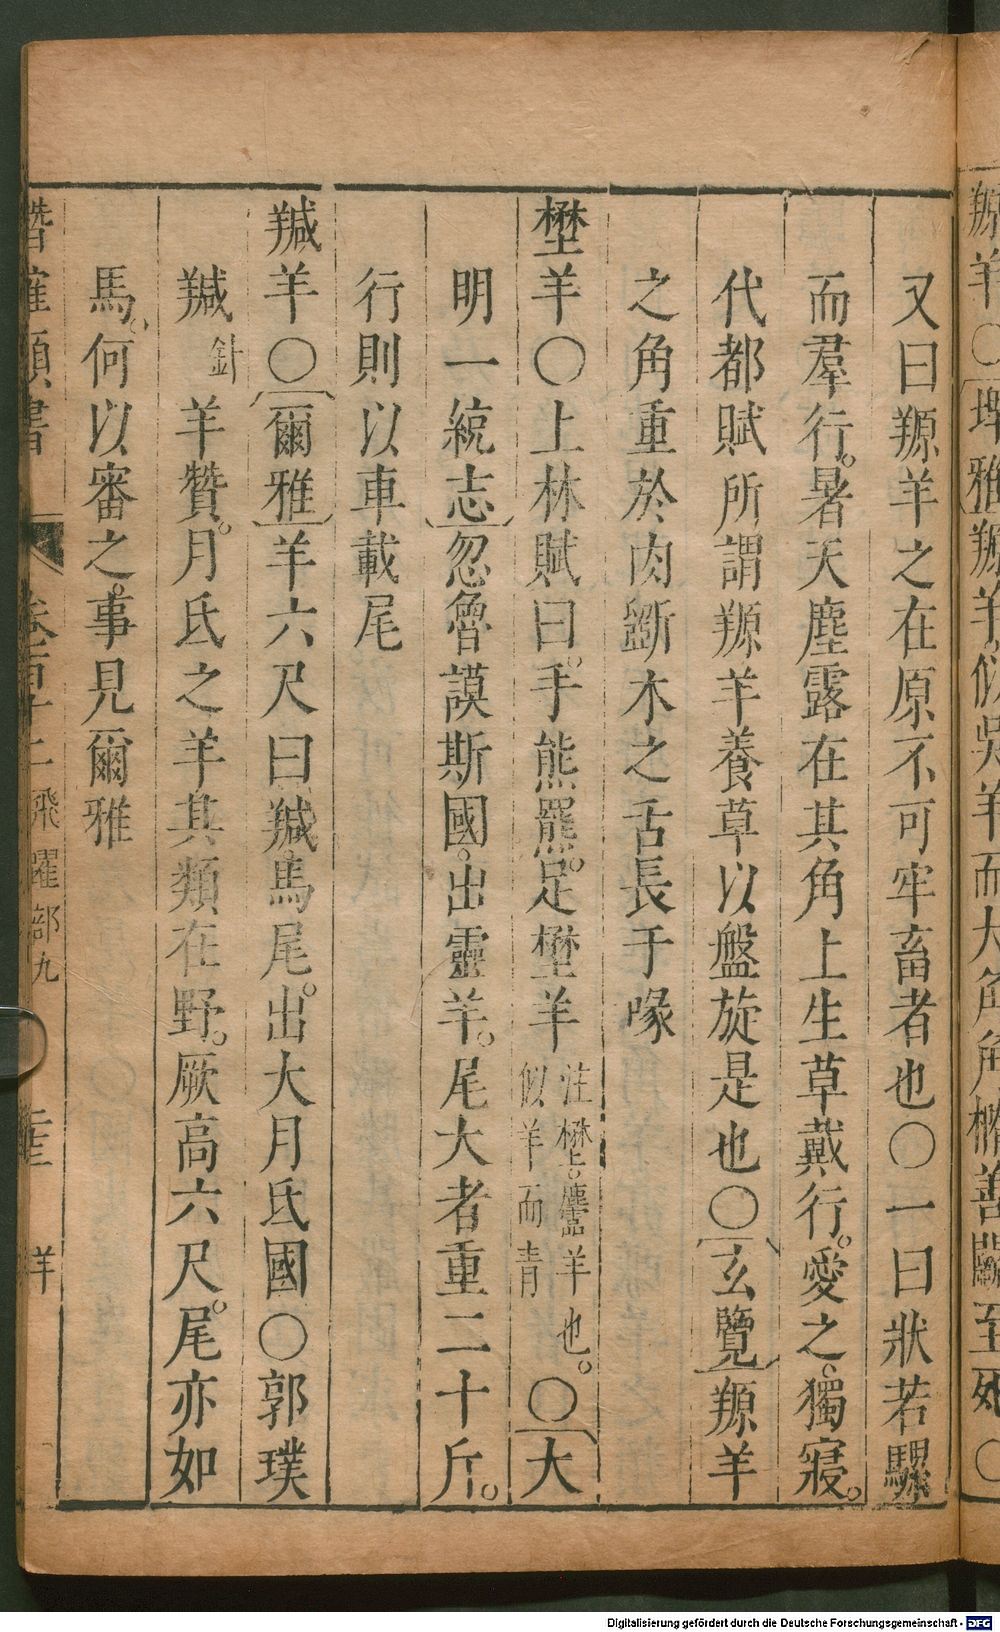 羱羊○埤雅羱羊似吳羊而大角角橢善鬭至死○
又曰羱羊之在原不可牢畜者也○一曰狀若騾
而羣行。暑天塵露在其角上生草戴行。愛之獨寢。
代都賦所謂羱羊養草以盤旋是也○玄覽羱羊
之角重於肉斵木之舌長于喙
壄羊○上林賦曰。手熊羆。足壄羊
注壄上。麢羊也。
似羊而青
○大
明一統志忽魯謨斯國。出靈羊。尾大者重二十斤。
行則以車載尾
羬羊○爾雅羊六尺曰羬。馬尾。出大月氐國○郭璞
羬
針
羊贊。月氐之羊其類在野。厥高六尺。尾亦如
馬。何以審之。事見爾雅
潛確類書
飛躍部九
羊
Digitalisierung gefördert durch die Deutsche Forschungsgemeinschaft - DFG